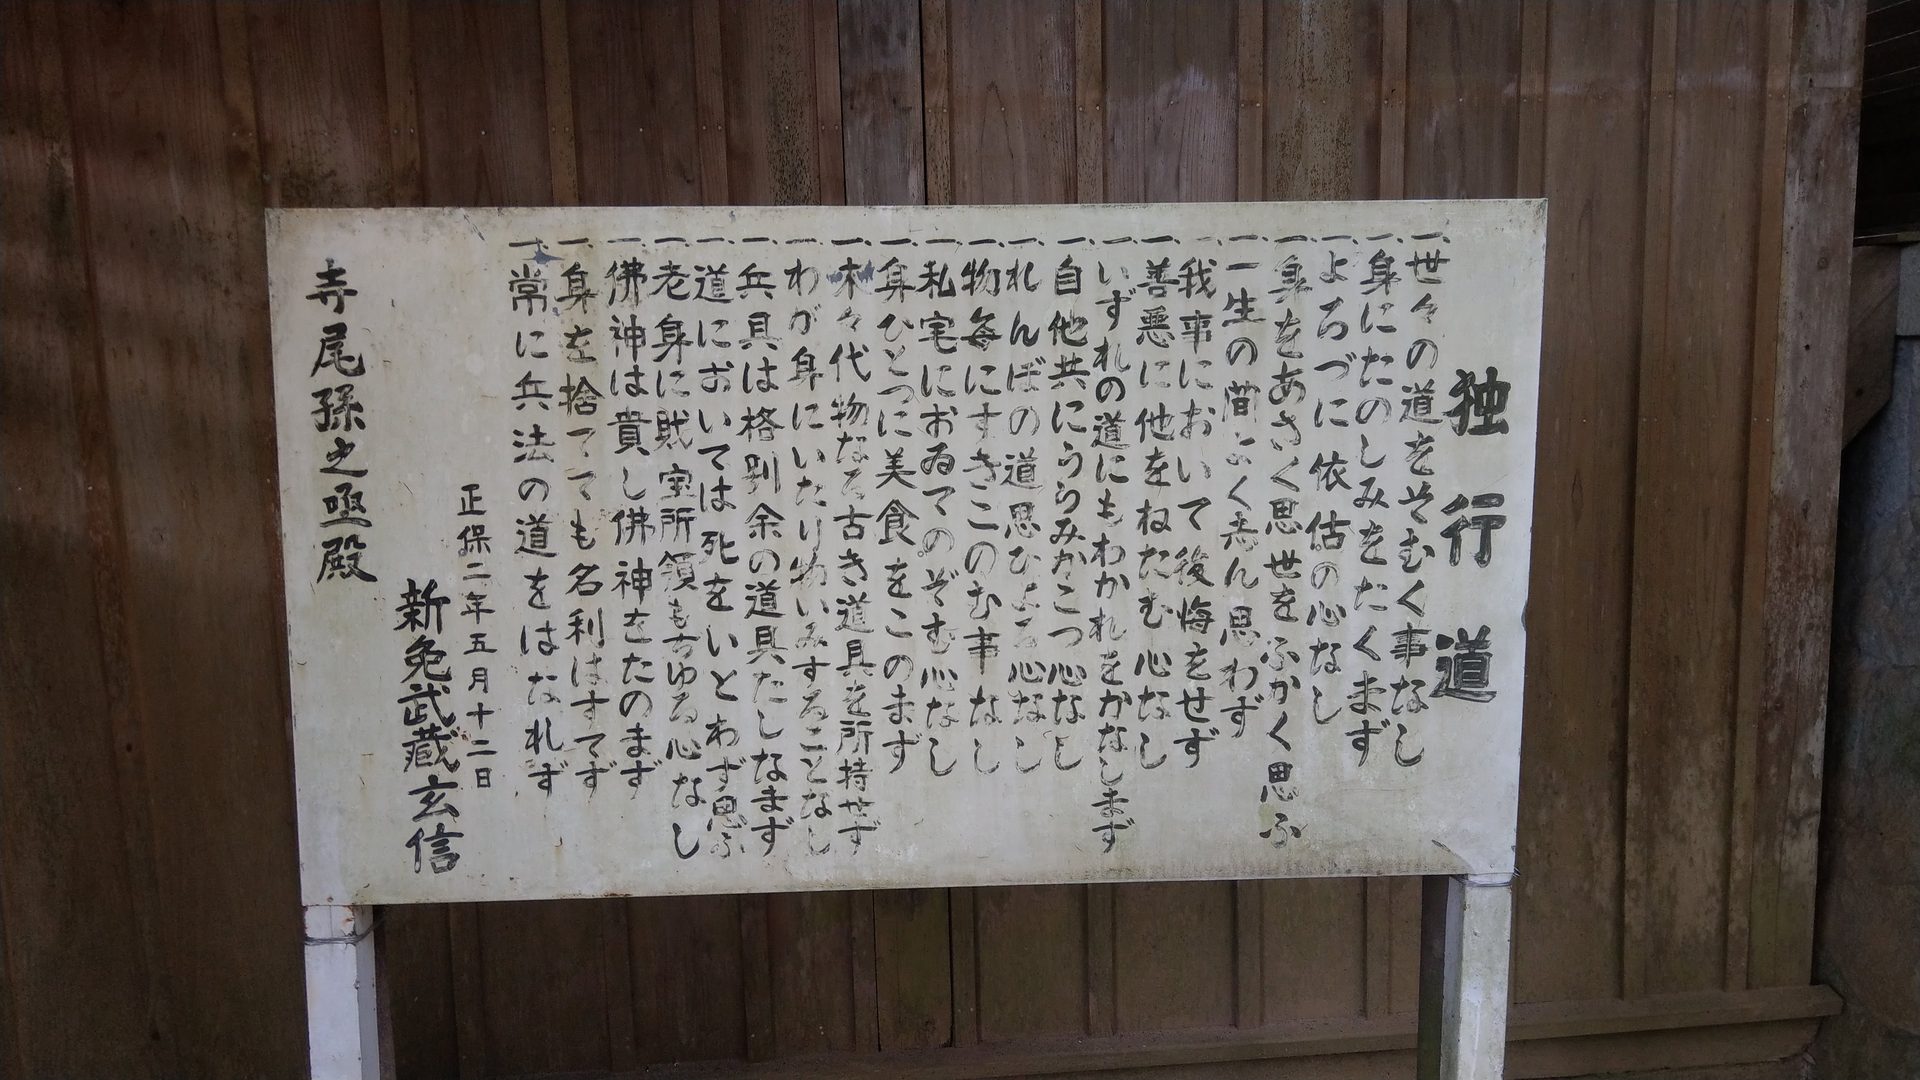 独行道
一、世々の道をそむく事なし
一、身にたのしみをたくまず
一、よろづに依估の心なし
一、身をあさく思世をふかく思ふ
一、一生の間よく志ん思わず
一、我事において後悔をせず
一、善悪に他をねたむ心なし
一、いずれの道にもわかれをかなしまず
一、自他共にうらみかこつ心なし
一、れんぼの道思ひよる心なし
一、物毎にすきこのむ事なし
一、私宅におゐてのぞむ心なし
一、身ひとつに美食をこのまず
一、末々代物なる古き道具を所持せず
一、わが身にいたり物いみすることなし
一、兵具は格別余の道具たしなまず
一、道においては死をいとわず思ふ
一、老身に財宝所領もちゆる心なし
一、佛神は貴し佛神をたのまず
一、身を捨てても名利はすてず
一、常に兵法の道をはなれず
正保二年五月十二日
新免武蔵玄信
寺尾孫之亟殿